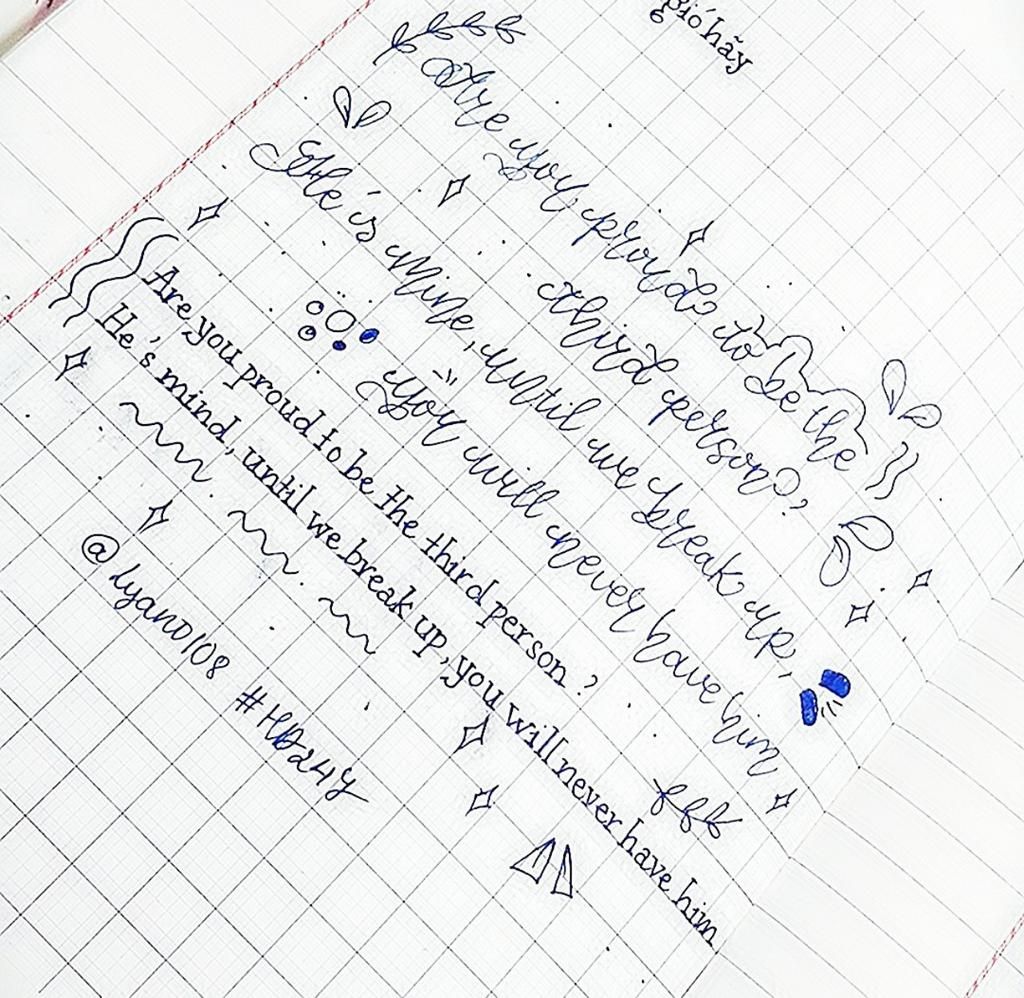 gió hãy
Are you proud to be the
third person?,
He is mine, until we break up,
you will never have him
Are you proud to be the third person?
He's mind, until we break up, you will never have him
@lyano108
#HD24Y